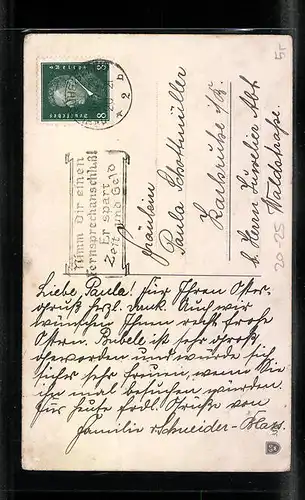 Nimm Dir einen
Fernsprechanschluß
Er spart
Zeit und Geld
Fräulein
Paula Schottmüller
Karlsruhe
b. Herrn Juwelier Abt
Waldstraße.
20-25
Liebe Paula! Für Ihren Oster-
gruß herzl. Dank. Auch wir
wünschen Ihnen recht frohe
Ostern. Bubele ist sehr groß
geworden und würde sich
sicher sehr freuen, wenn Sie
ihn mal besuchen würden.
Für heute frdl. Grüße von
Familie Schneider-